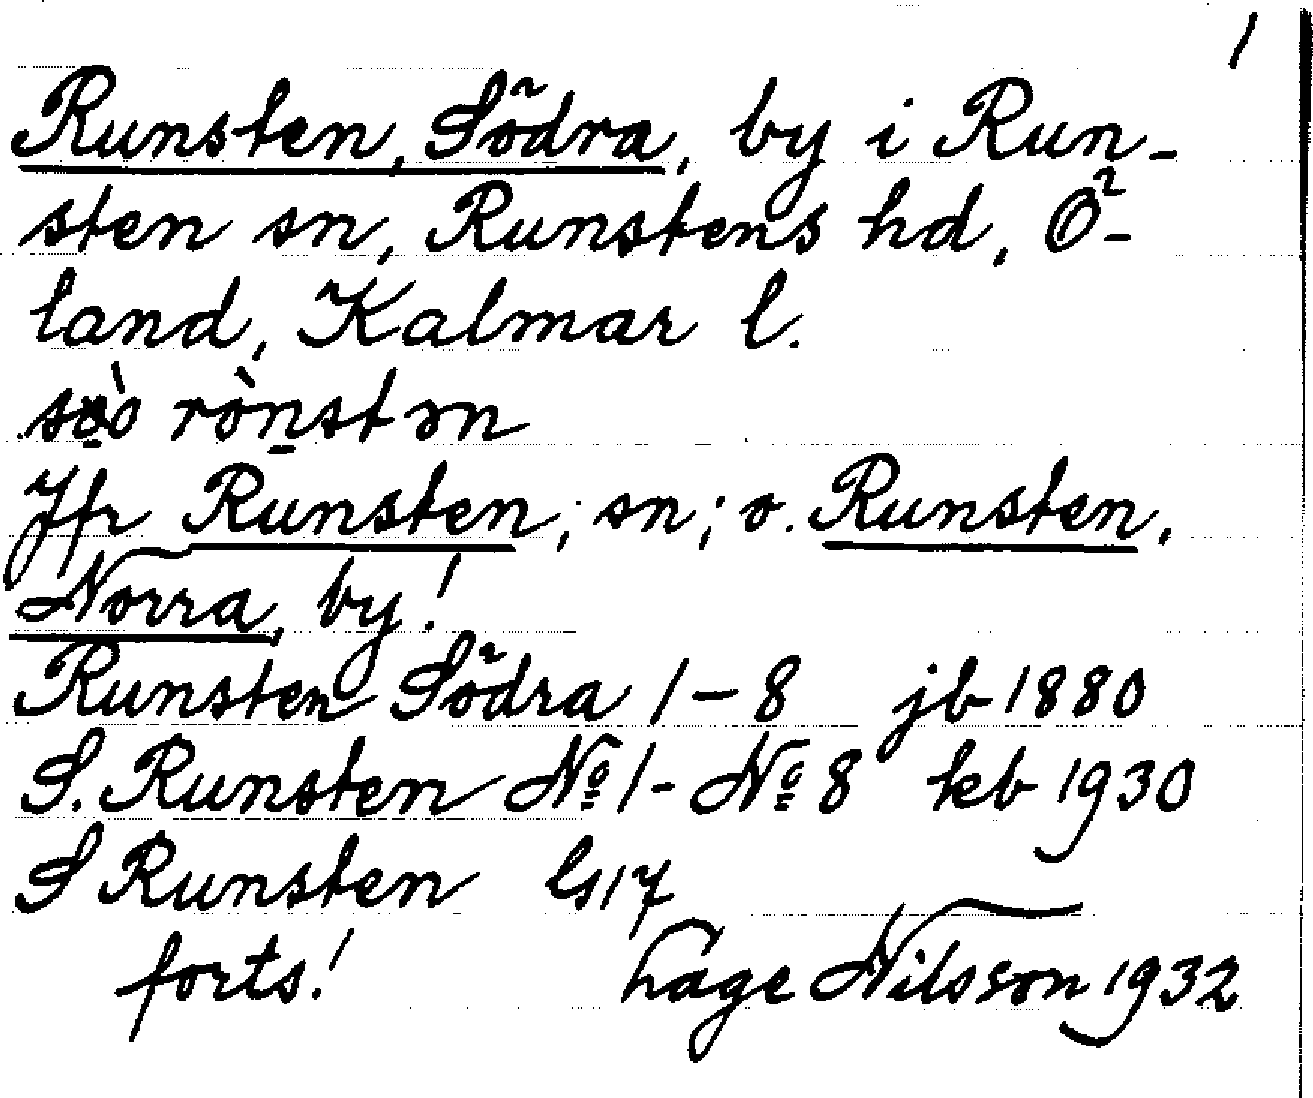 1
Runsten, Södra, by i Run-
sten sn, Runstens hd, Ö-
land, Kalmar l.
rònstən
Jfr Runsten, sn; o. Runsten,
Norra, by!
Runsten Södra 1-8 jb 1880
S. Runsten No 1- No 8 keb 1930
S Runsten ls 17
forts! Hage Nilsson 1932